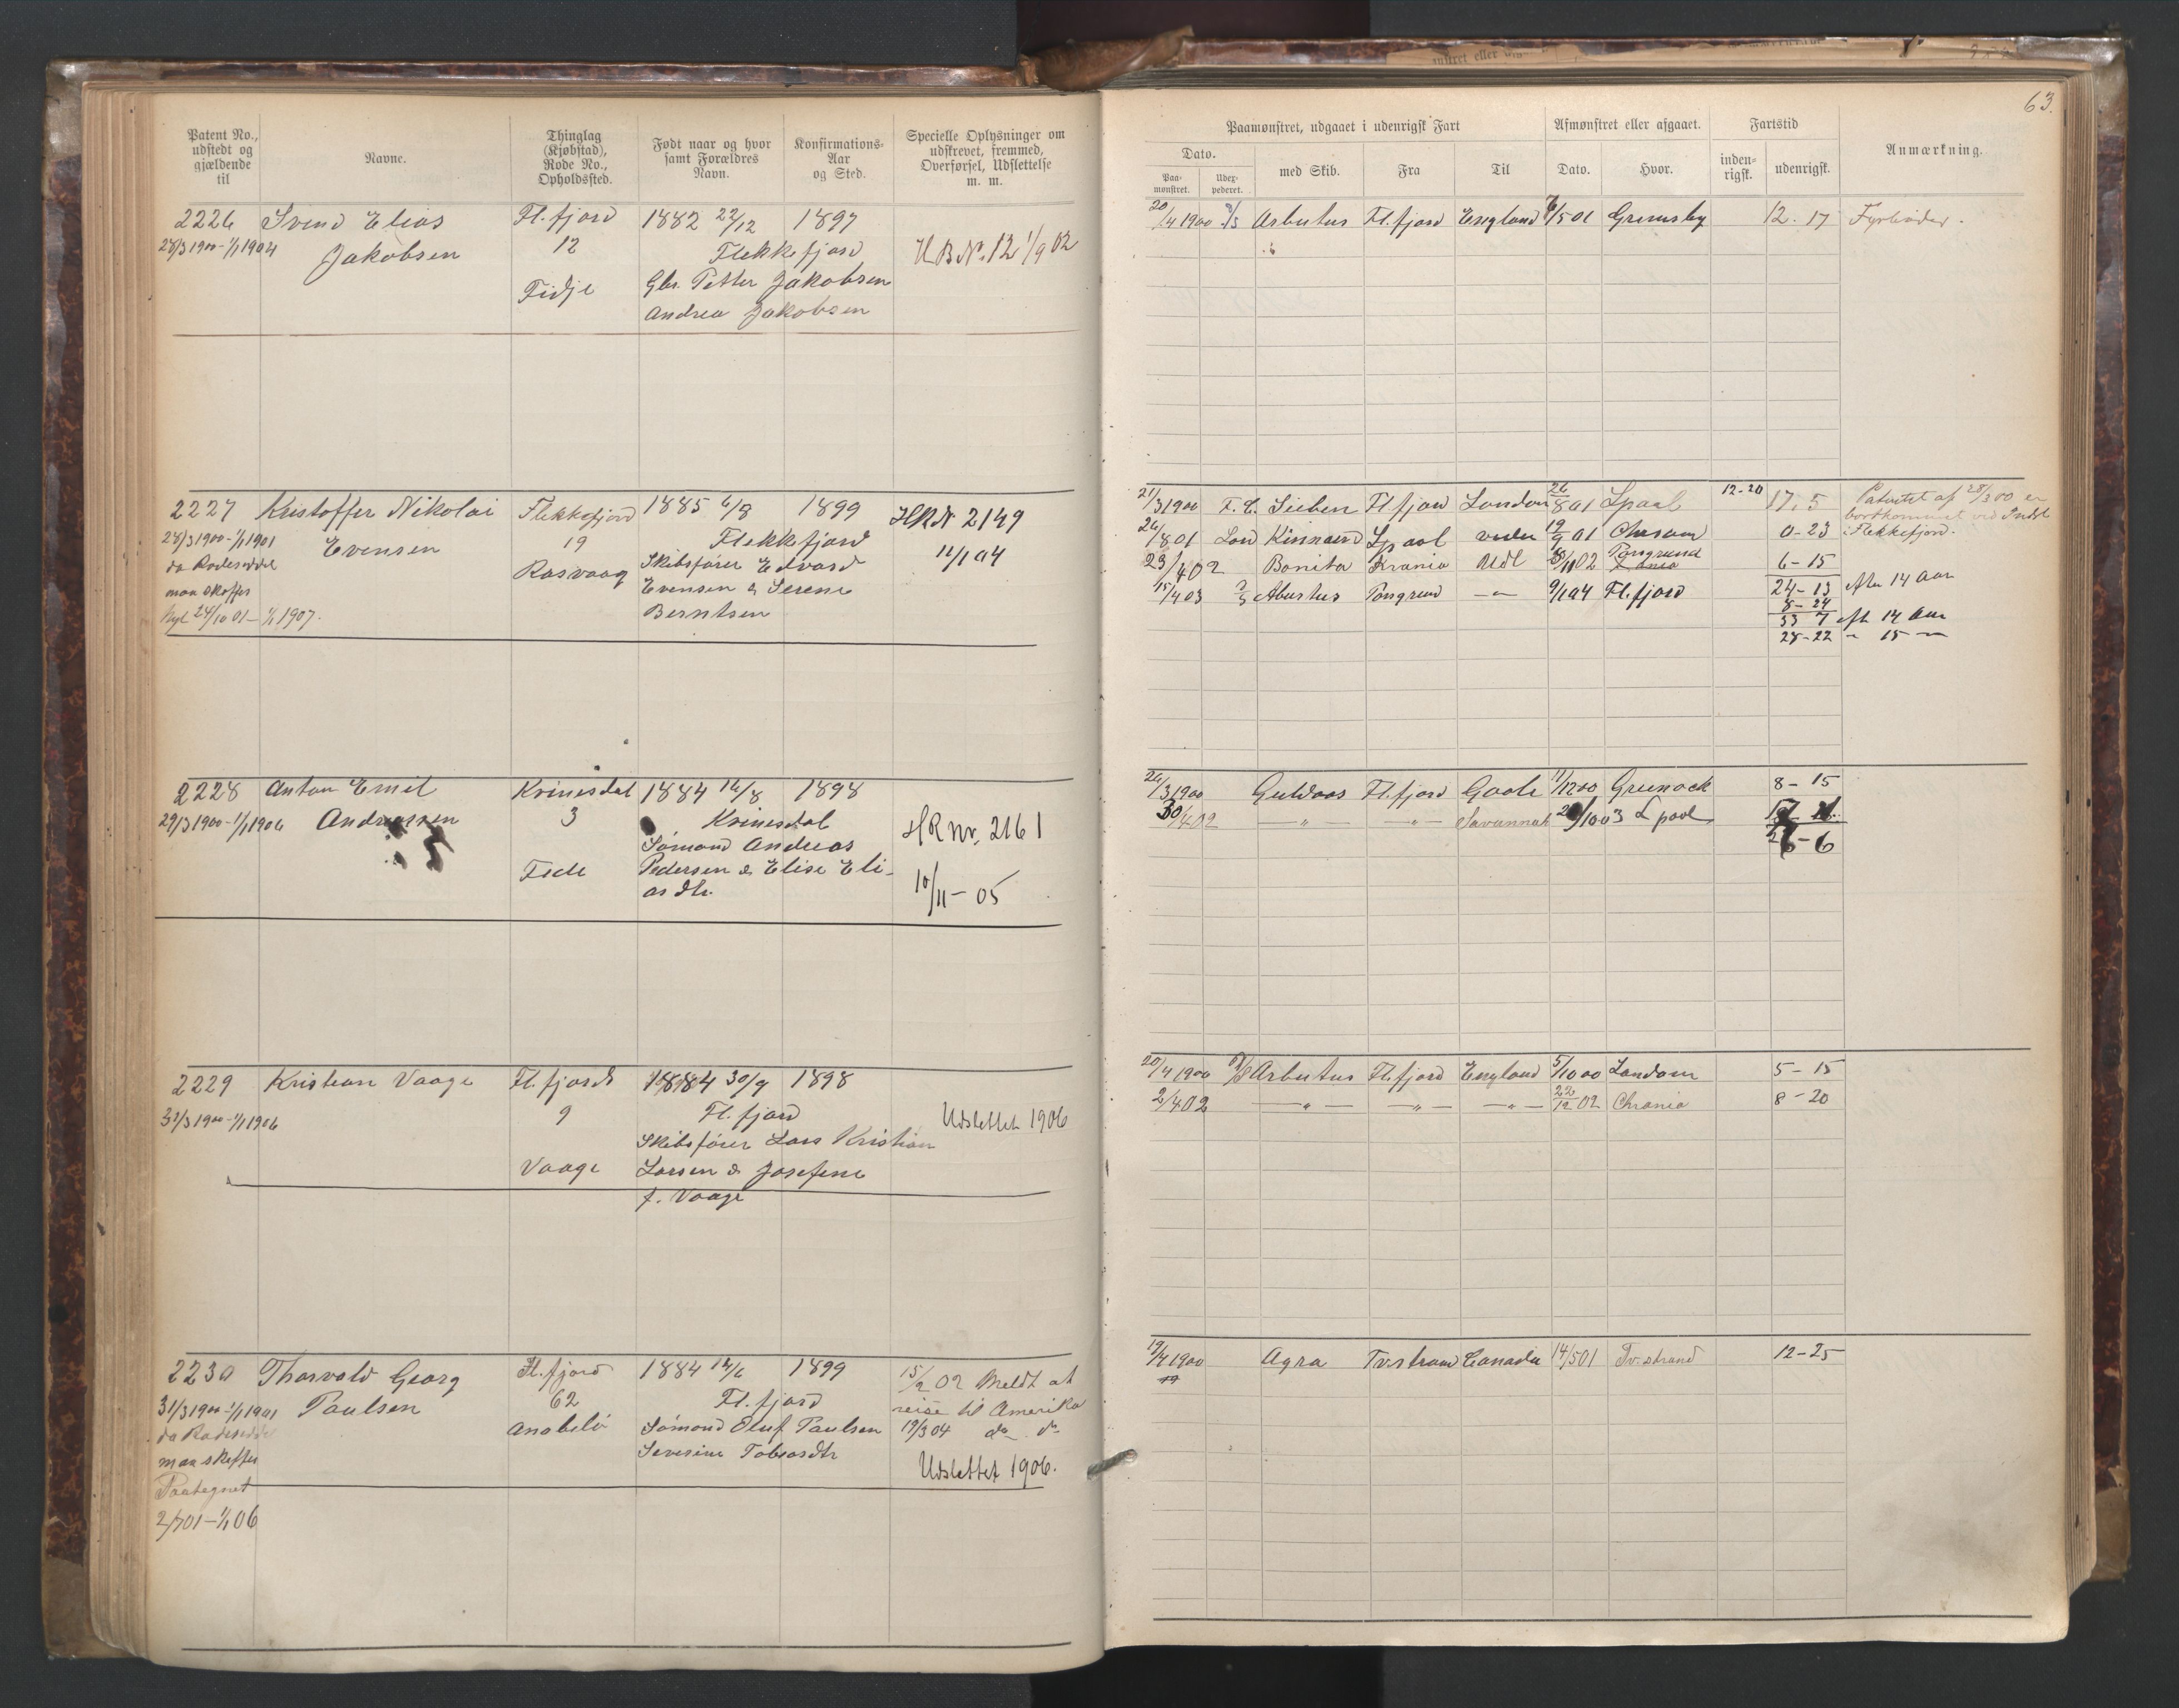 63.
Patent No., udstedt og gjældende til
Navne.
Thinglag (Kjøbstad), Rode No., Opholdssted.
Født naar og hvor samt Forældres Navn.
Konfirmations-Aar og Sted.
Specielle Oplysninger om udskrevet, fremmed, Overførsel, Udslettelse m. m.
Paamønstret, udgaaet i udenrigsk Fart
Dato.
Paamønstret.
Udexpederet.
med Skib.
Fra
Til
Afmønstret eller afgaaet.
Dato.
Hvor.
Fartstid
indenrigsk.
udenrigsk.
Anmærkning.
2226 Svend Elias Fl.fjord 1882 22/12 1897
28/3 1900 - 1/1 1904 Jakobsen 12 Flekkefjord
Fidje Gbr. Petter Jakobsen
Andrea Jakobsen
H B No. 12 1/9 02
20/4 1900 Arbutus Fl.fjord England 6/5 01 Grimsby 12. 17 Fyrbøder.
2227 Kristoffer Nikolai Flekkefjord 1885 6/8 1899
28/3 1900 - 1/1 1901 Evensen 19 Flekkefjord
da Rodeseddel Rasvaag Skibsfører Edvard
maa skaffes Evensen & Serene
Nyt 24/10 01 - 1/1 1907. Berntsen
HR No 2149
12/1 04
21/3 1900 F. E. Sieben Fl.fjord London 26/8 01 Lpool 12-20 17. 5
Patentet af 28/3 00 er
bortkommet ved Indl
i Flekkefjord.
26/8 01 Lord Kinnaird Lpool 19/9 01 0-23
23/4 02 Bonita Krania Udl 02 6-15
15/4 03 Abustus Porsgrund — " — 9/1 04 Fl.fjord 24-13 efter 14 Aar
8-24
33 7 eft 14 Aar
28-22 " 15 —
2228 Anton Emil Kvinesdal 1884 16/8 1898
29/3 1900 - 1/1 1906 Andreassen 3 Kvinesdal
Sømand Andreas
Fede Pedersen & Elise Eli-
as dtr.
HR Nr. 2161
10/11 - 05
26/3 1900 Guldaas Fl.fjord Goole 11/12 00 Greenock 8-15
30/4 02 — " — — " — Savannah /10 03 Lpool
6
2229 Kristian Vaage Fl.fjords 1884 30/9 1898
31/3 1900 - 1/1 1906 9 Fl.fjord
Skibsfører Lars Kristian
Vaage Larsen & Josefine
f. Vaage
Udslettet 1906
20/4 1900 Arbutus Fl.fjord England 5/10 00 London 5-15
2/4 02 — " — — " — — " — 22/12 02 Chrania 8-20
2230 Thorvald Georg Fl.fjord 1884 1899
31/3 1900 - 1/1 1901 Paulsen 62 Fl.fjord
da Rodeseddel Anabeló Sømand Oluf Paulsen
maa skaffes Severine Tobiasdtr
Paategnet
2/7 01 - 1/1 06
15/2 02 Meldt at
reise til Amerika
19/3 04 do. do
Udslettet 1906.
19/4 1900 Agra Tv.strand Canada 14/5 01 Tv.strand 12-25